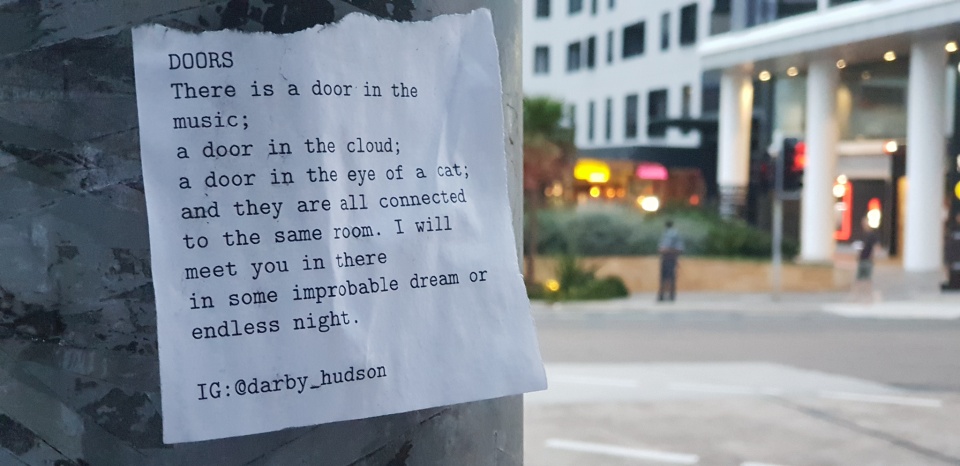 DOORS
There is a door in the
music;
a door in the cloud;
a door in the eye of a cat;
and they are all connected
to the same room. I will
meet you in there
in some improbable dream or
endless night.
IG:@darby_hudson